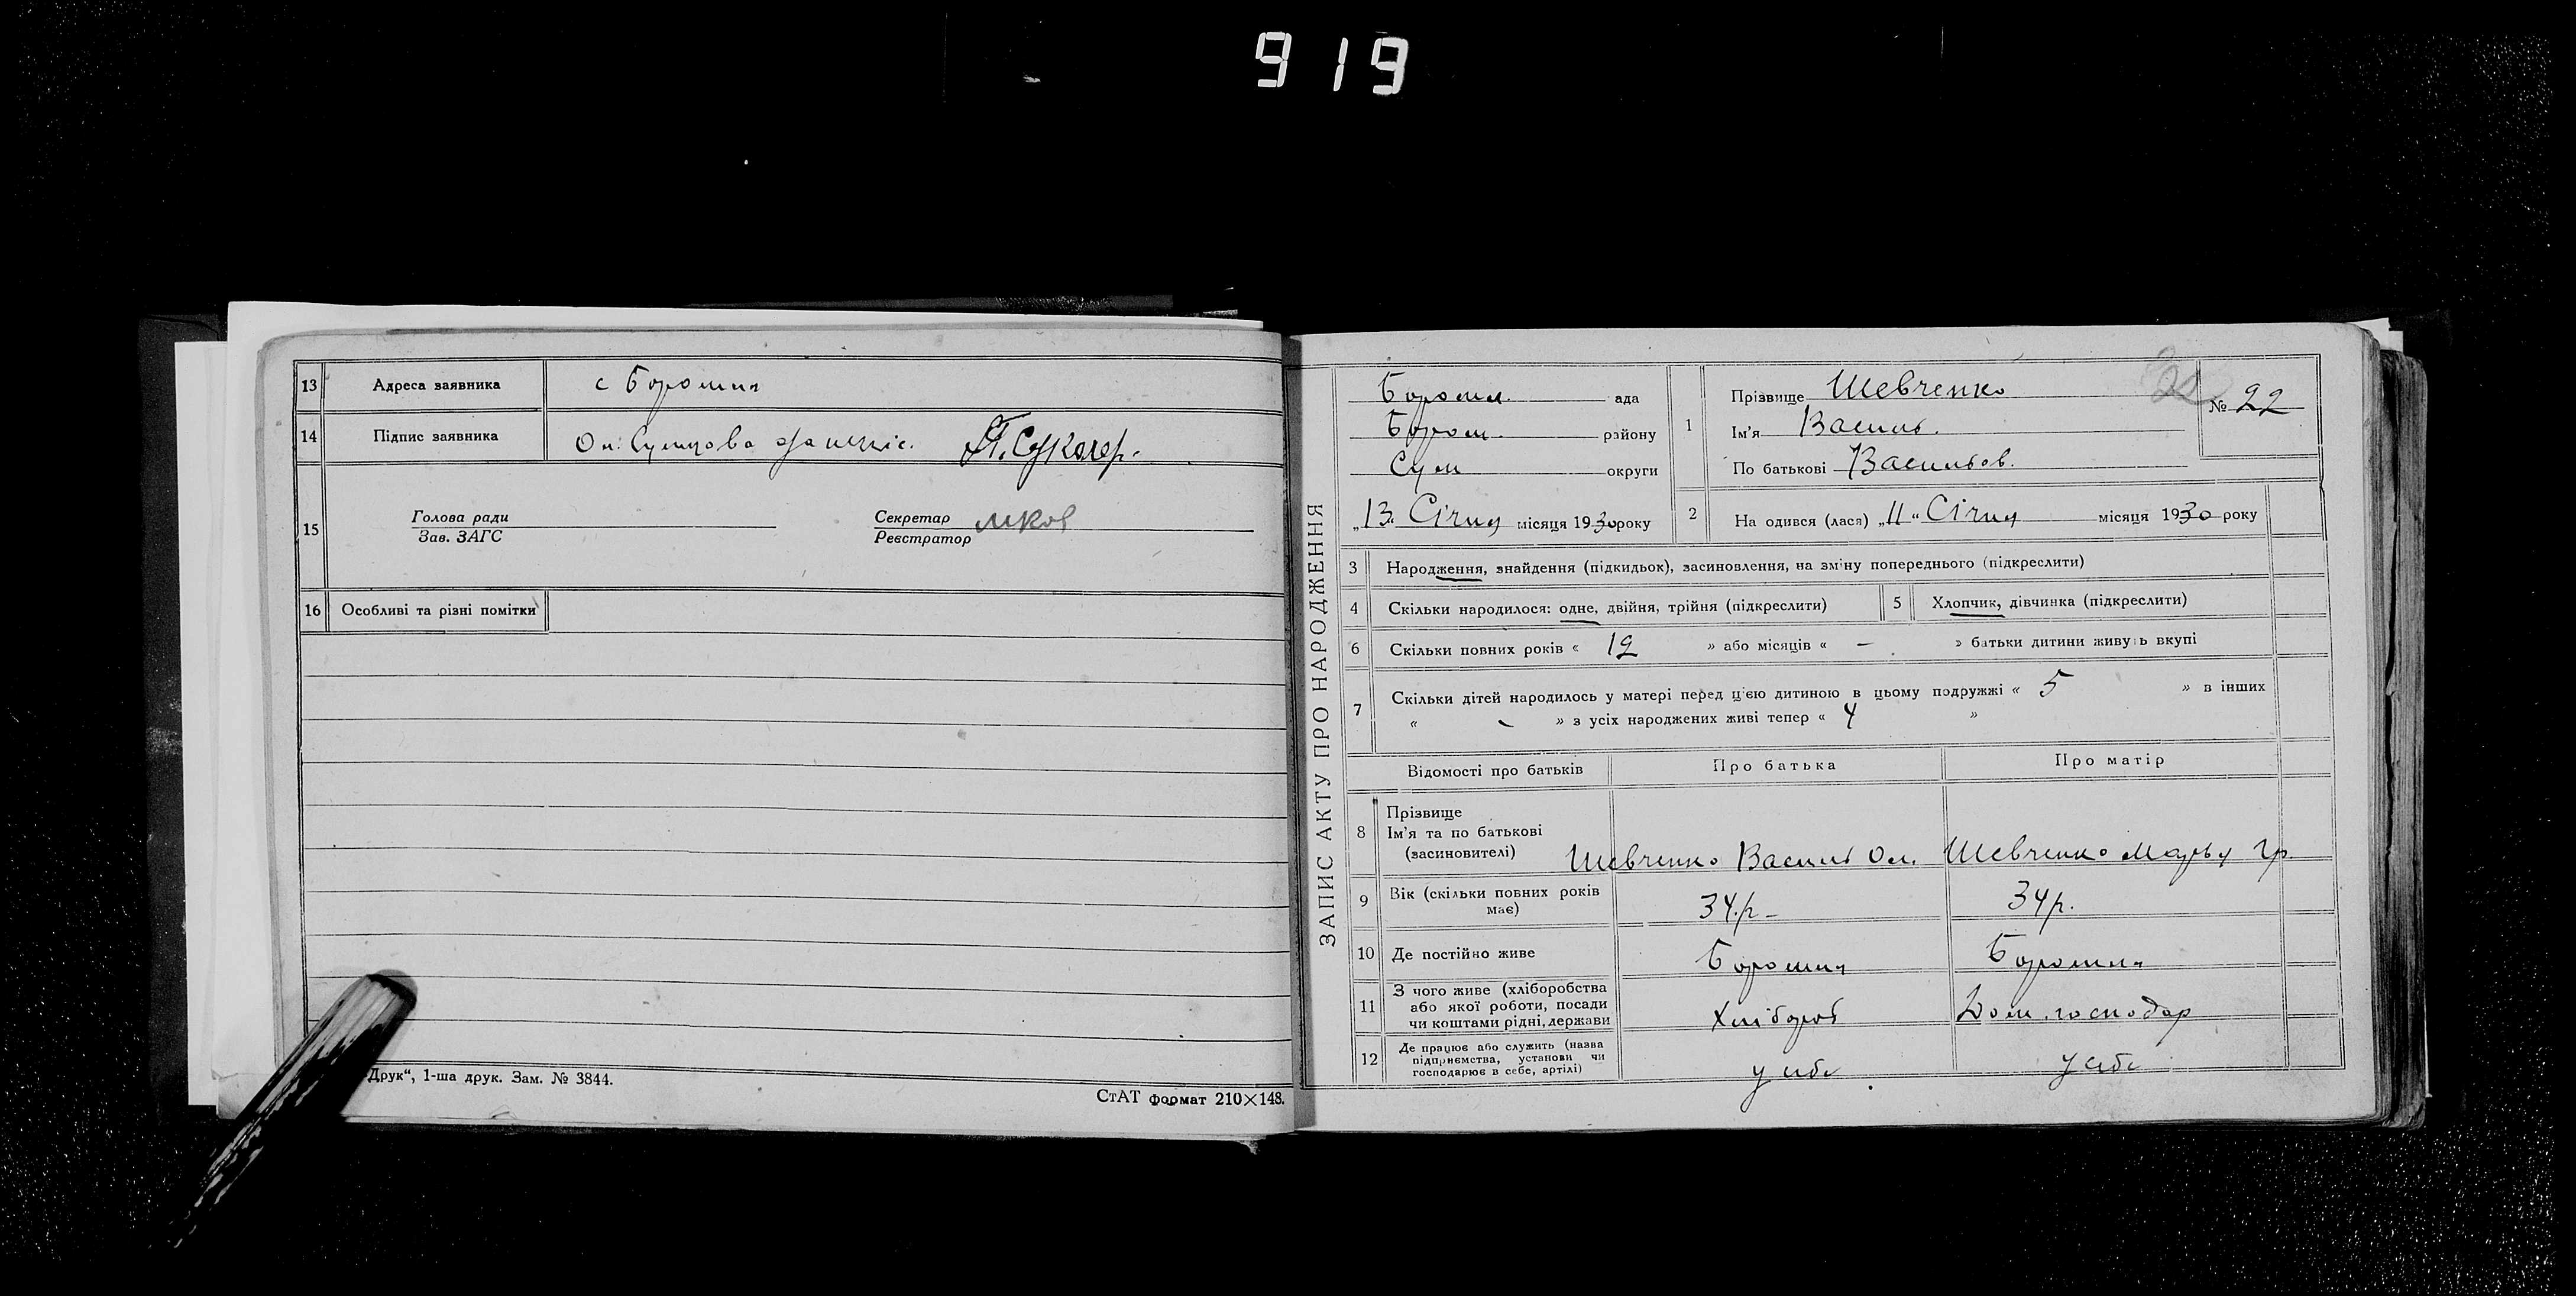 919
13 Адреса заявника с Боромля
14 Підпис заявника
15 Голова ради
Зав. ЗАГС
Секретар
Реєстратор
16 Особливі та різні помітки
Друк“, 1-ша друк. Зам. № 3844.
СтАТ формат 210×148.
ЗАПИС АКТУ ПРО НАРОДЖЕННЯ
Боромл. ада
Бором. району
Сум округи
„13“ Січня місяця 1930 року
1 Прізвище Шевченко
Ім'я Василь.
По батькові Васильов.
№ 22
2 На одився (лася) „11“ Січня місяця 1930 року
3 Народження, знайдення (підкидьок), засиновлення, на зміну попереднього (підкреслити)
4 Скільки народилося: одне, двійня, трійня (підкреслити) 5 Хлопчик, дівчинка (підкреслити)
6 Скільки повних років « 12 » або місяців « — » батьки дитини живуть вкупі
7 Скільки дітей народилось у матері перед цією дитиною в цьому подружжі « 5 » в інших
« - » з усіх народжених живі тепер « 4 »
Відомості про батьків Про батька Про матір
8 Прізвище
Ім'я та по батькові
(засиновителі) Шевченко Василь Ом. Шевченко Марья Гр.
9 Вік (скільки повних років
має) 34.р. 34р.
10 Де постійно живе Боромля Боромля
11 З чого живе (хліборобства
або якої роботи, посади
чи коштами рідні, держави Хлібороб Дом. господар
12 Де працює або служить (назва
підприємства, установи чи
господарює в себе, артілі) у себе у себе